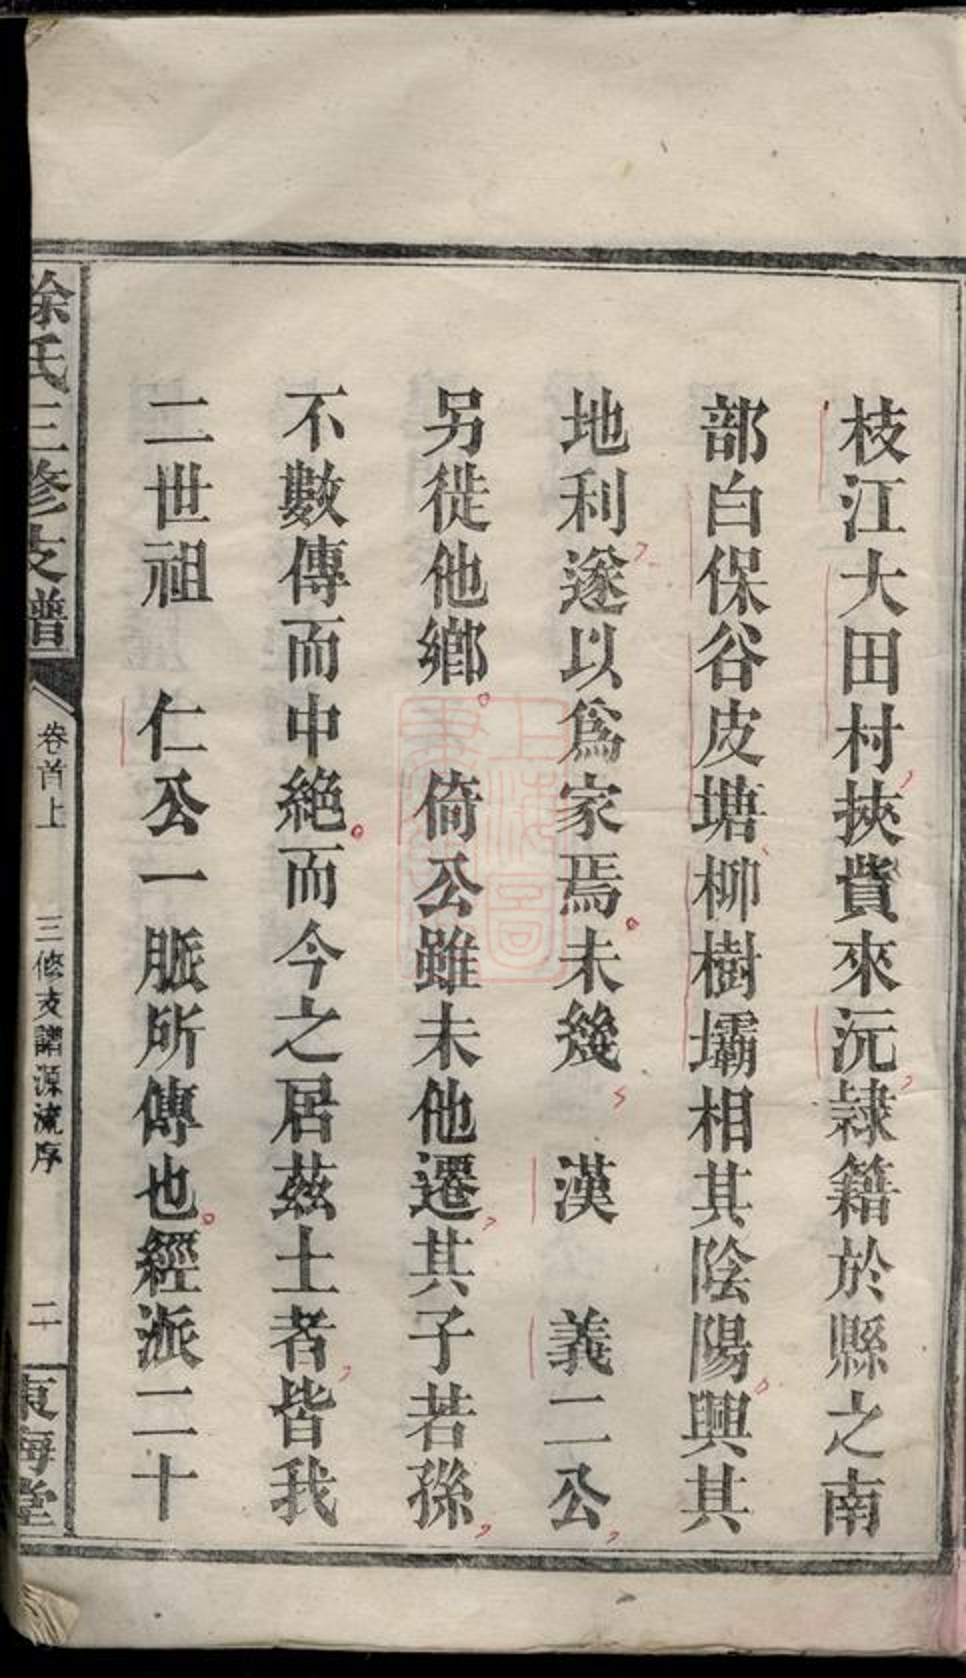 枝江大田村挾貲來沅隷籍於縣之南
部白保谷皮塘柳樹壩相其陰陽興其
地利遂以為家焉未幾　漢　義二公
另徙他鄉　倚公雖未他遷其子若孫
不數傳而中絕而今之居茲土者皆我
二世祖　仁公一脈所傳也經派二十
徐氏三修支譜
卷首上　三修支譜源流序　二
東海堂